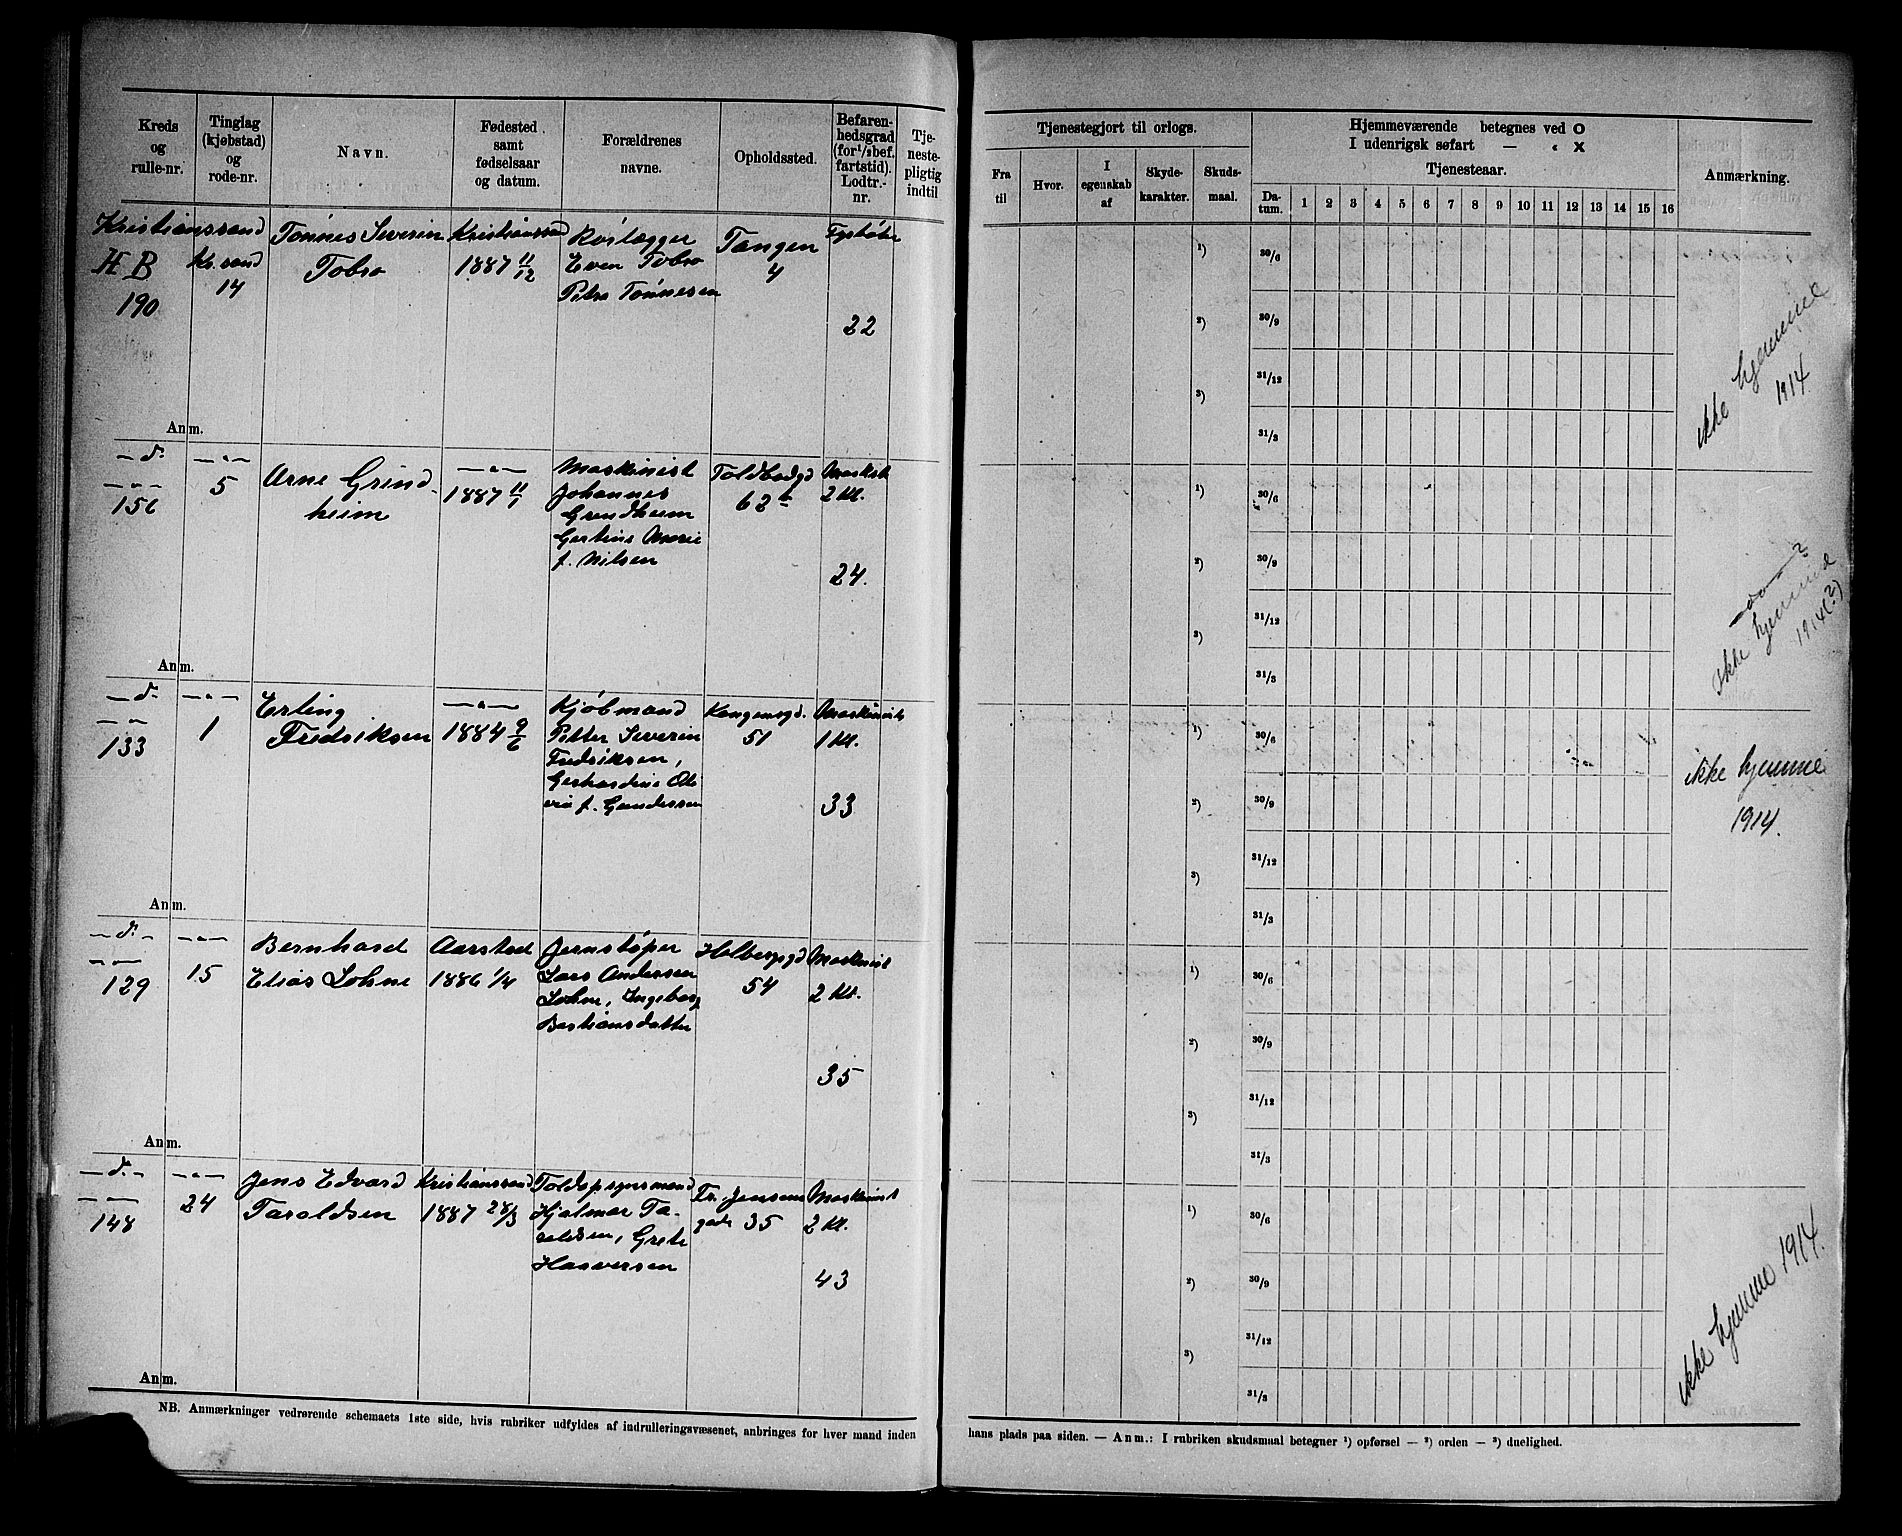 Kreds
og
rulle-nr.
Tinglag
(kjøbstad)
og
rode-nr.
Navn.
Fødested
samt
fødselsaar
og datum.
Forældrenes
navne.
Opholdssted.
Befaren-
hedsgrad
(for ¹/₂ bef.
fartstid).
Lodtr.-
nr.
Tje-
neste-
pligtig
indtil
Tjenestegjort til orlogs.
Fra
til
Hvor.
I
egenskab
af
Skyde-
karakter.
Skuds-
maal.
Hjemmeværende betegnes ved O
I udenrigsk søfart — „ X
Tjenesteaar.
Da-
tum.
1 2 3 4 5 6 7 8 9 10 11 12 13 14 15 16
Anmærkning.
Kristianssand
H B
190
Kr.sand
14
Tønnes Severin
Tobro
Kristianssand
1887 11/12
Even Tobro
Petra Tønnesen
Tangen
4
Fyrbøter
22
¹) 30/6
²) 30/9
31/12
³)
31/3
ikke hjemme
1914
Anm.
— d. —
— „ —
156
— „ —
5
Arne Grind-
heim
— „ —
1887 11/1
Maskinist
Johannes
Grindheim
Gertine Marie
f. Nilsen
Toldbodgd
62 b
2 Kl.
24.
¹) 30/6
²) 30/9
31/12
³)
31/3
— do — ?
ikke hjemme
1914(?)
Anm.
— d. —
— „ —
133
— „ —
1
Erling
Fredriksen
— „ —
1884 9/6
Kjøbmand
Petter Severin
Fredriksen,
Gerhardine Oli-
via f. Gundersen
Kongensgd.
51
Maskinist
1 Kl.
33
¹) 30/6
²) 30/9
31/12
³)
31/3
ikke hjemme
1914.
Anm.
— d. —
— „ —
129
— „ —
15
Bernhard
Elias Lohne
Aarstad
1886 1/4
Jernstøper
Lars Andersen
Lohne, Ingeborg
Bastiansdatter
Holbergsgd
54
Maskinist
2 Kl.
35
¹) 30/6
²) 30/9
31/12
³)
31/3
Anm.
— d. —
— „ —
148
— „ —
24
Jens Edvard
Taraldsen
Kristianssand
1887 28/3
Toldopsynsmand
Hjalmar Ta-
raldsen, Grete
Haaversen
Fr. Jensens
gade 35
Maskinist
2 Kl.
43
¹) 30/6
²) 30/9
31/12
³)
31/3
ikke hjemme 1914.
Anm.
NB. Anmærkninger vedrørende schemaets 1ste side, hvis rubriker udfyldes af indrulleringsvæsenet, anbringes for hver mand inden
hans plads paa siden. — Anm.: I rubriken skudsmaal betegner ¹) opførsel — ²) orden — ³) duelighed.